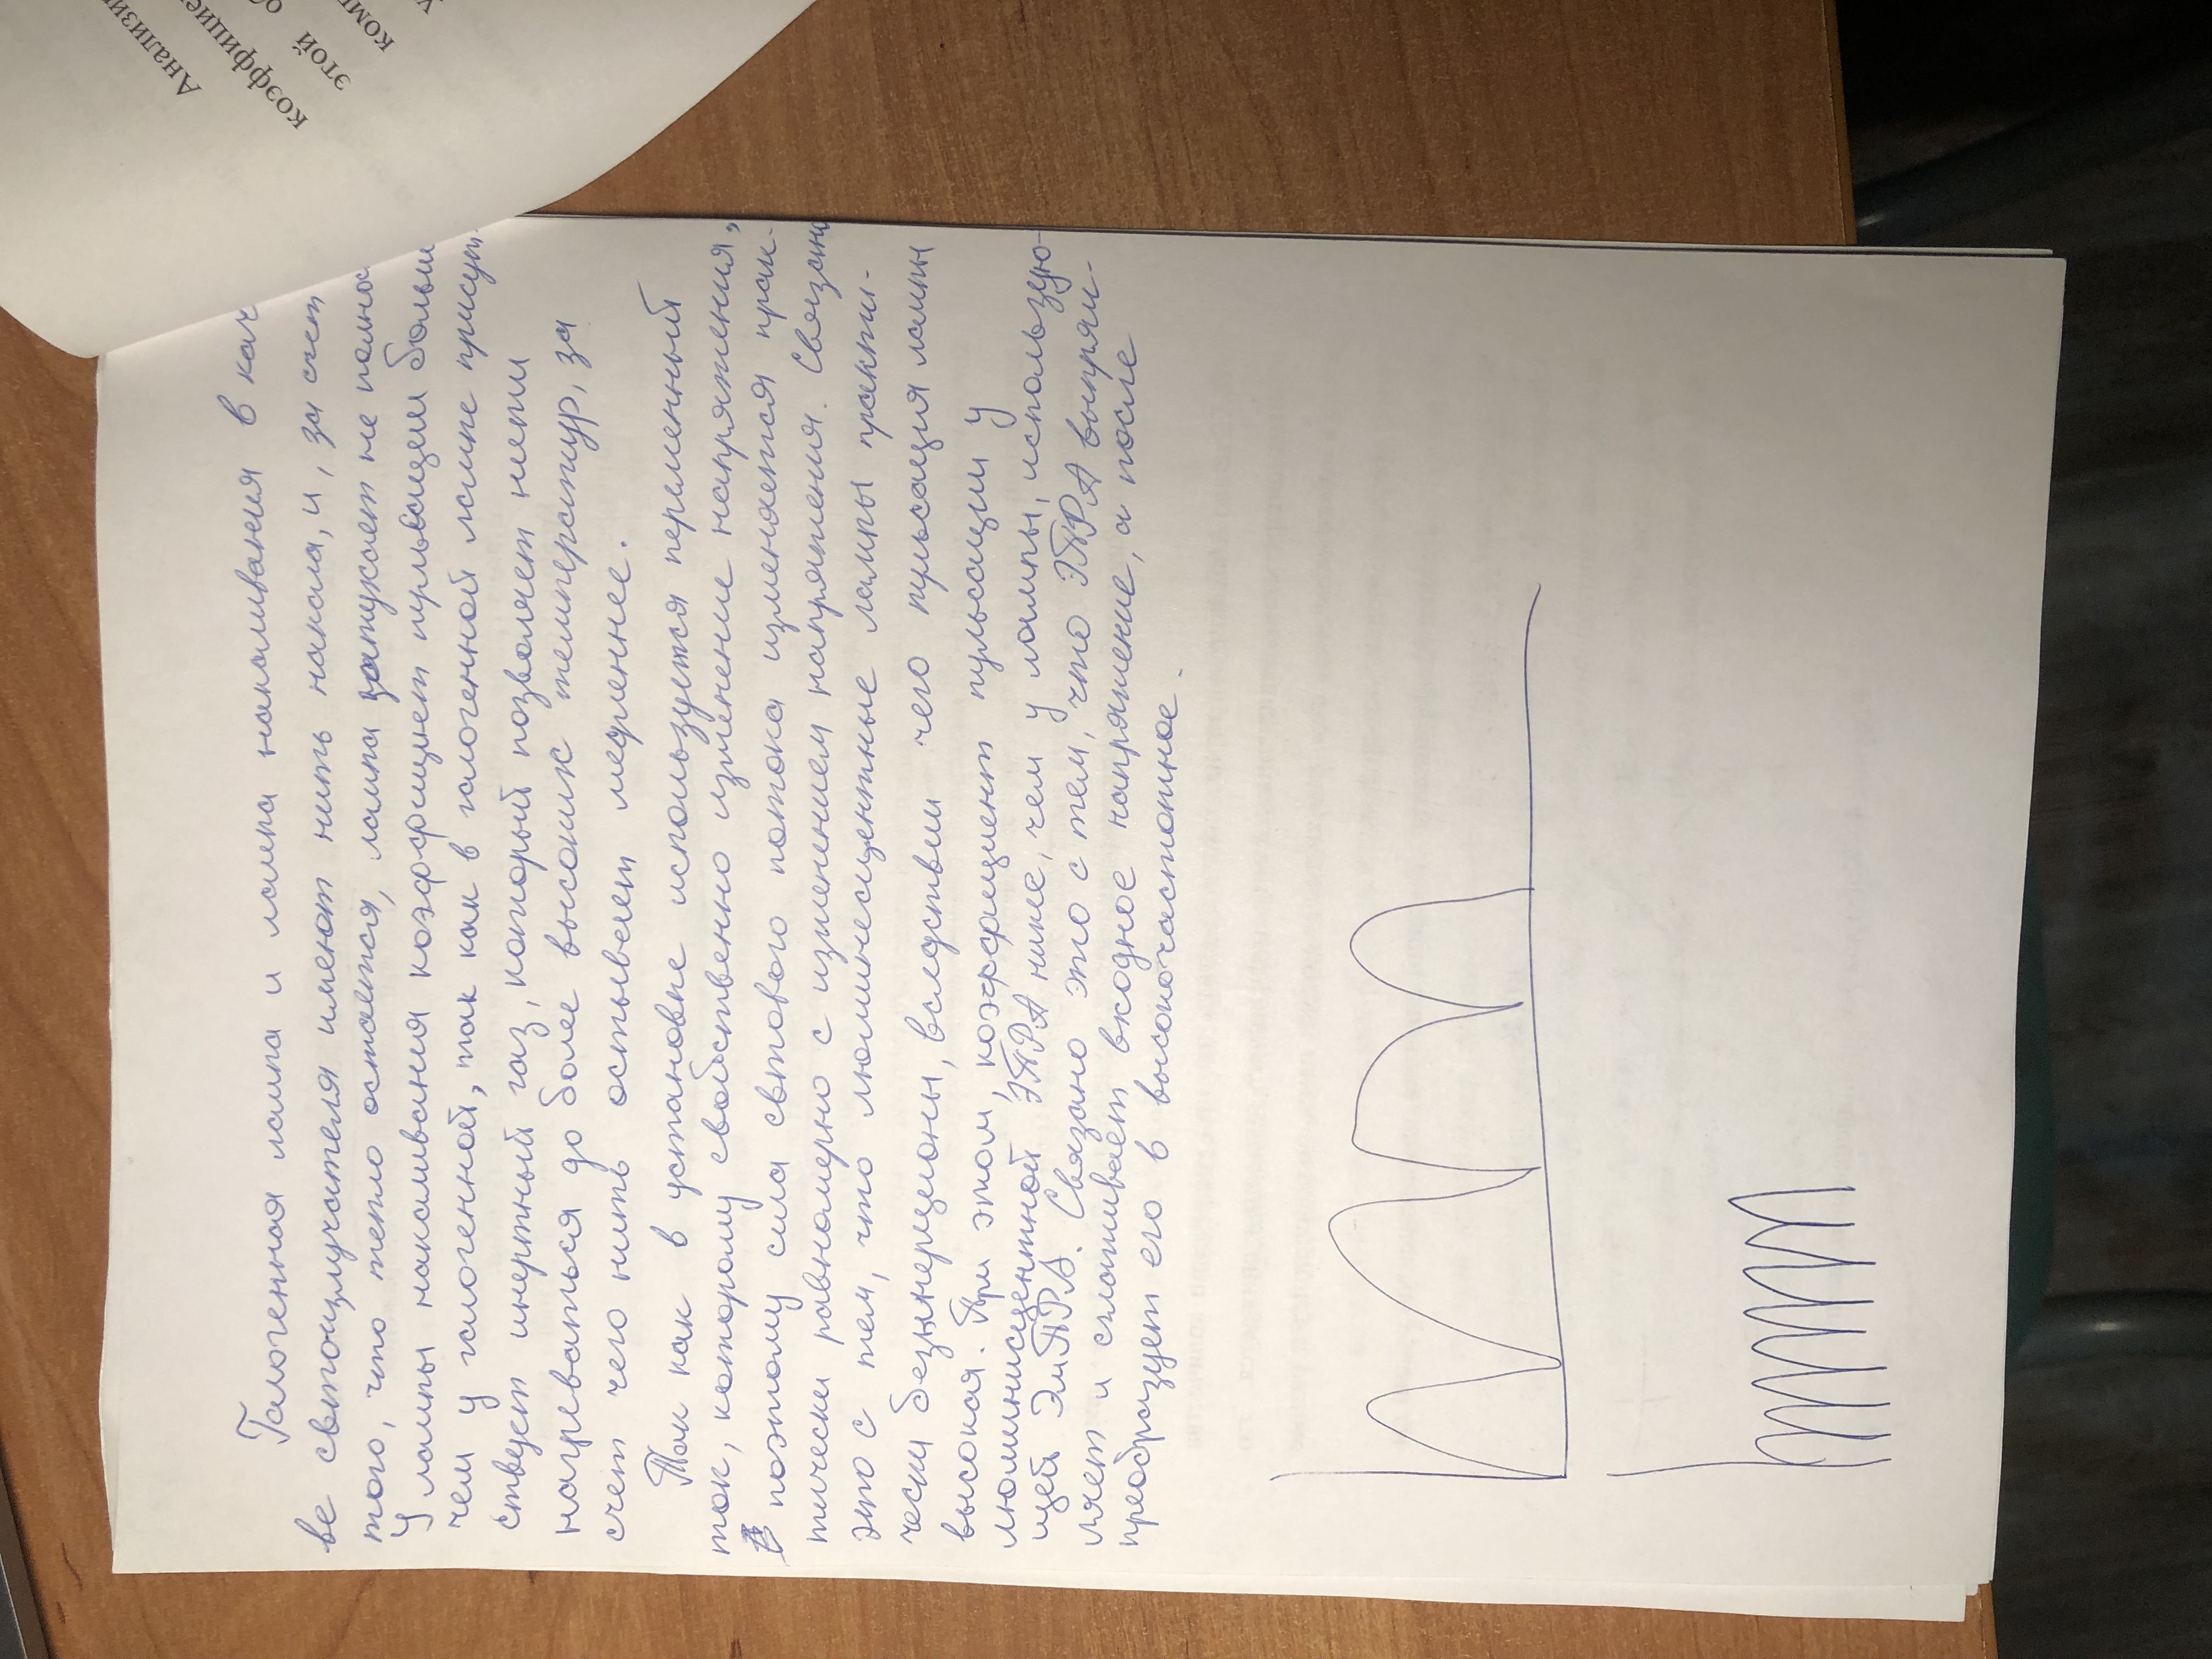 Галогенная лампа и лампа накаливания в кач
ве светоизлучателя имеют нить накала, и, за счет
того, что тепло остается, лампа затухает не полнос
У лампы накаливания коэффициент пульсации больше
чем у галогенной, так как в галогенной лампе присут-
ствует инертный газ, который позволяет нити
нагреваться до более высоких температур, за
счет чего нить остывает медленнее.
Так как в установке используется переменный
ток, которому свойственно изменение напряжения,
поэтому сила светового потока изменяется прак-
тически равномерно с изменением напряжения. Связано
это с тем, что люминесцентные лампы практи-
чески безынерционы, вследствии чего пульсация лампы
высокая. При этом, коэффициент пульсации у
люминисцентной ЭПРА ниже, чем у лампы, использую-
щей ЭмПРА. Связано это с тем, что ЭПРА выпрям-
ляет и сглаживает входное напряжение, а после
преобразует его в высокочастотное.
Анализи
коэффицие
этой об
комп
у